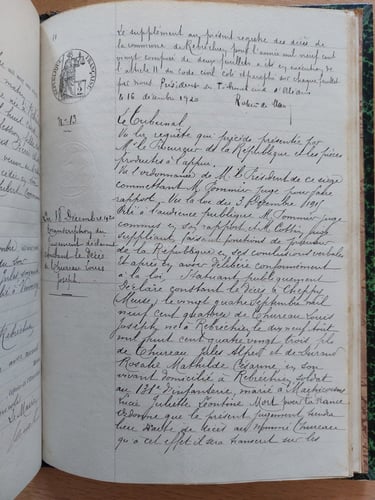 Le supplément au présent registre des décès de
la commune de Rebréchien pour l'année mil neuf cent
vingt composé de deux feuillets a été en exécution de
l'article II du code civil coté & paraphé sur chaque feuillet
par nous Président du Tribunal civil d'Orléans
le 16 décembre 1920
RÉPUBLIQUE FRANÇAISE
N° 13
Le Tribunal
Vu la requête qui précède présentée par
M. le Procureur de la République et les pièces
produites à l'appui.
Vu l'ordonnance de M. le Président de ce siège
commettant M. Pommier juge pour faire
rapport. Vu la loi du 3 Décembre 1915
Ouï à l'audience publique M. Pommier juge
commis en son rapport, et M. juge
suppléant, faisant fonctions de procureur
de la République en ses conclusions verbales
et après en avoir délibéré conformément
à la loi, Statuant publiquement
Déclare constant le décès à Cheppy
Meuse, le vingt quatre Septembre mil
neuf cent quatorze de Thureau Louis
Joseph, né à Rebréchien le dix neuf Août
mil huit cent quatre vingt trois, fils
de Thureau Jules et de
Rosalie Mathilde Césarine, en son
vivant domicilié à Rebréchien, soldat
au 131e d'infanterie, marié à
Lucie Juliette Léontine Mort pour la France
Ordonne que le présent jugement tiendra
lieu d'acte de décès au nommé Thureau
qu'à cet effet il sera transcrit sur les
Du 18 Décembre 1920
Transcription du
jugement déclarant
constant le décès
de Thureau Louis
Joseph